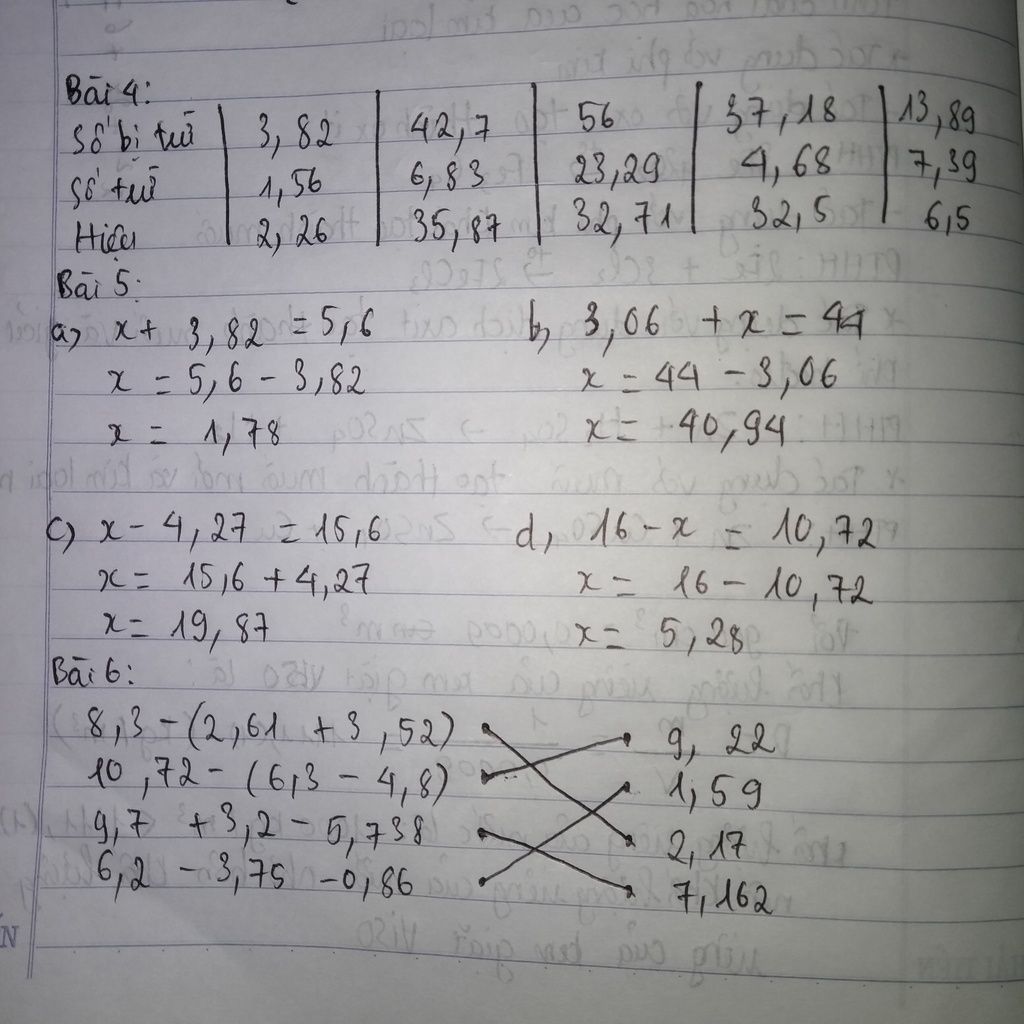 Bài 4:
Số bị trừ | 3,82 | 42,7 | 56 | 37,18 | 13,89
Số trừ | 1,56 | 6,83 | 23,29 | 4,68 | 7,39
Hiệu | 2,26 | 35,87 | 32,71 | 32,5 | 6,5
Bài 5:
a, x + 3,82 = 5,6 b, 3,06 + x = 44
x = 5,6 - 3,82 x = 44 - 3,06
x = 1,78 x = 40,94
c, x - 4,27 = 15,6 d, 16 - x = 10,72
x = 15,6 + 4,27 x = 16 - 10,72
x = 19,87 x = 5,28
Bài 6:
8,3 - (2,61 + 3,52) 9,22
10,72 - (6,3 - 4,8) 1,59
9,7 + 3,2 - 5,738 2,17
6,2 - 3,75 - 0,86 7,162